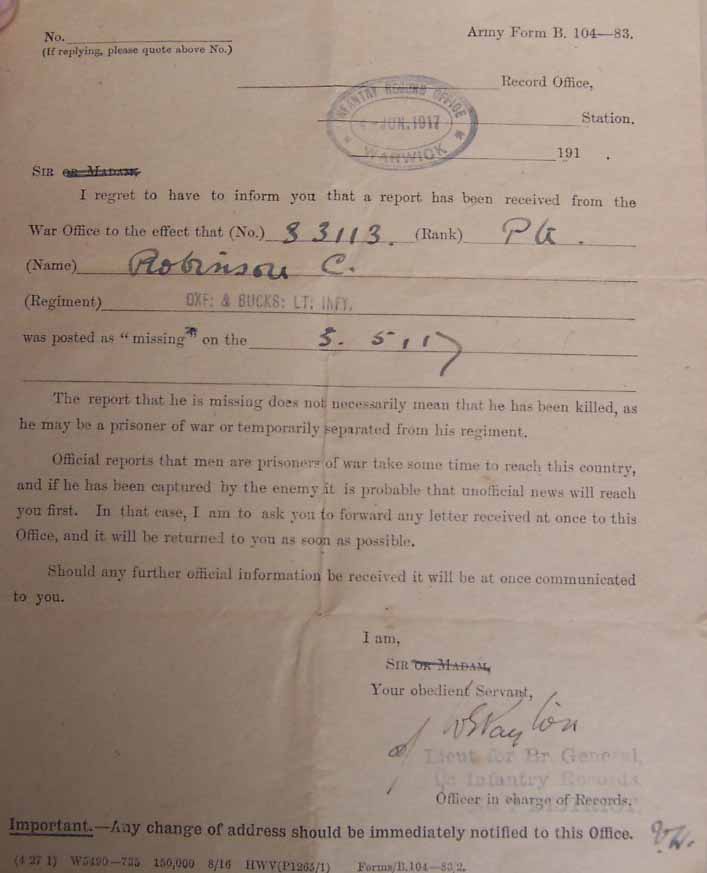 No.
Army Form B. 104—83.
(If replying, please quote above No.)
Record Office,
INFANTRY RECORD OFFICE
JUN. 1917
WARWICK
Station.
191 .
SIR OR MADAM,
I regret to have to inform you that a report has been received from the
War Office to the effect that (No.) 33113. (Rank) Pte.
(Name) Robinson C.
(Regiment) OXF: & BUCKS: LT: INFY.
was posted as "missing" on the 3. 5. 17
The report that he is missing does not necessarily mean that he has been killed, as
he may be a prisoner of war or temporarily separated from his regiment.
Official reports that men are prisoners of war take some time to reach this country,
and if he has been captured by the enemy it is probable that unofficial news will reach
you first. In that case, I am to ask you to forward any letter received at once to this
Office, and it will be returned to you as soon as possible.
Should any further official information be received it will be at once communicated
to you.
I am,
SIR OR MADAM,
Your obedient Servant,
Lieut for Br General,
i/c Infantry Records
Officer in charge of Records.
Important.—Any change of address should be immediately notified to this Office.
(4 27 1) W5490—735 150,000 8/16 HWV(P1265/1) Forms/B.104—83/2.